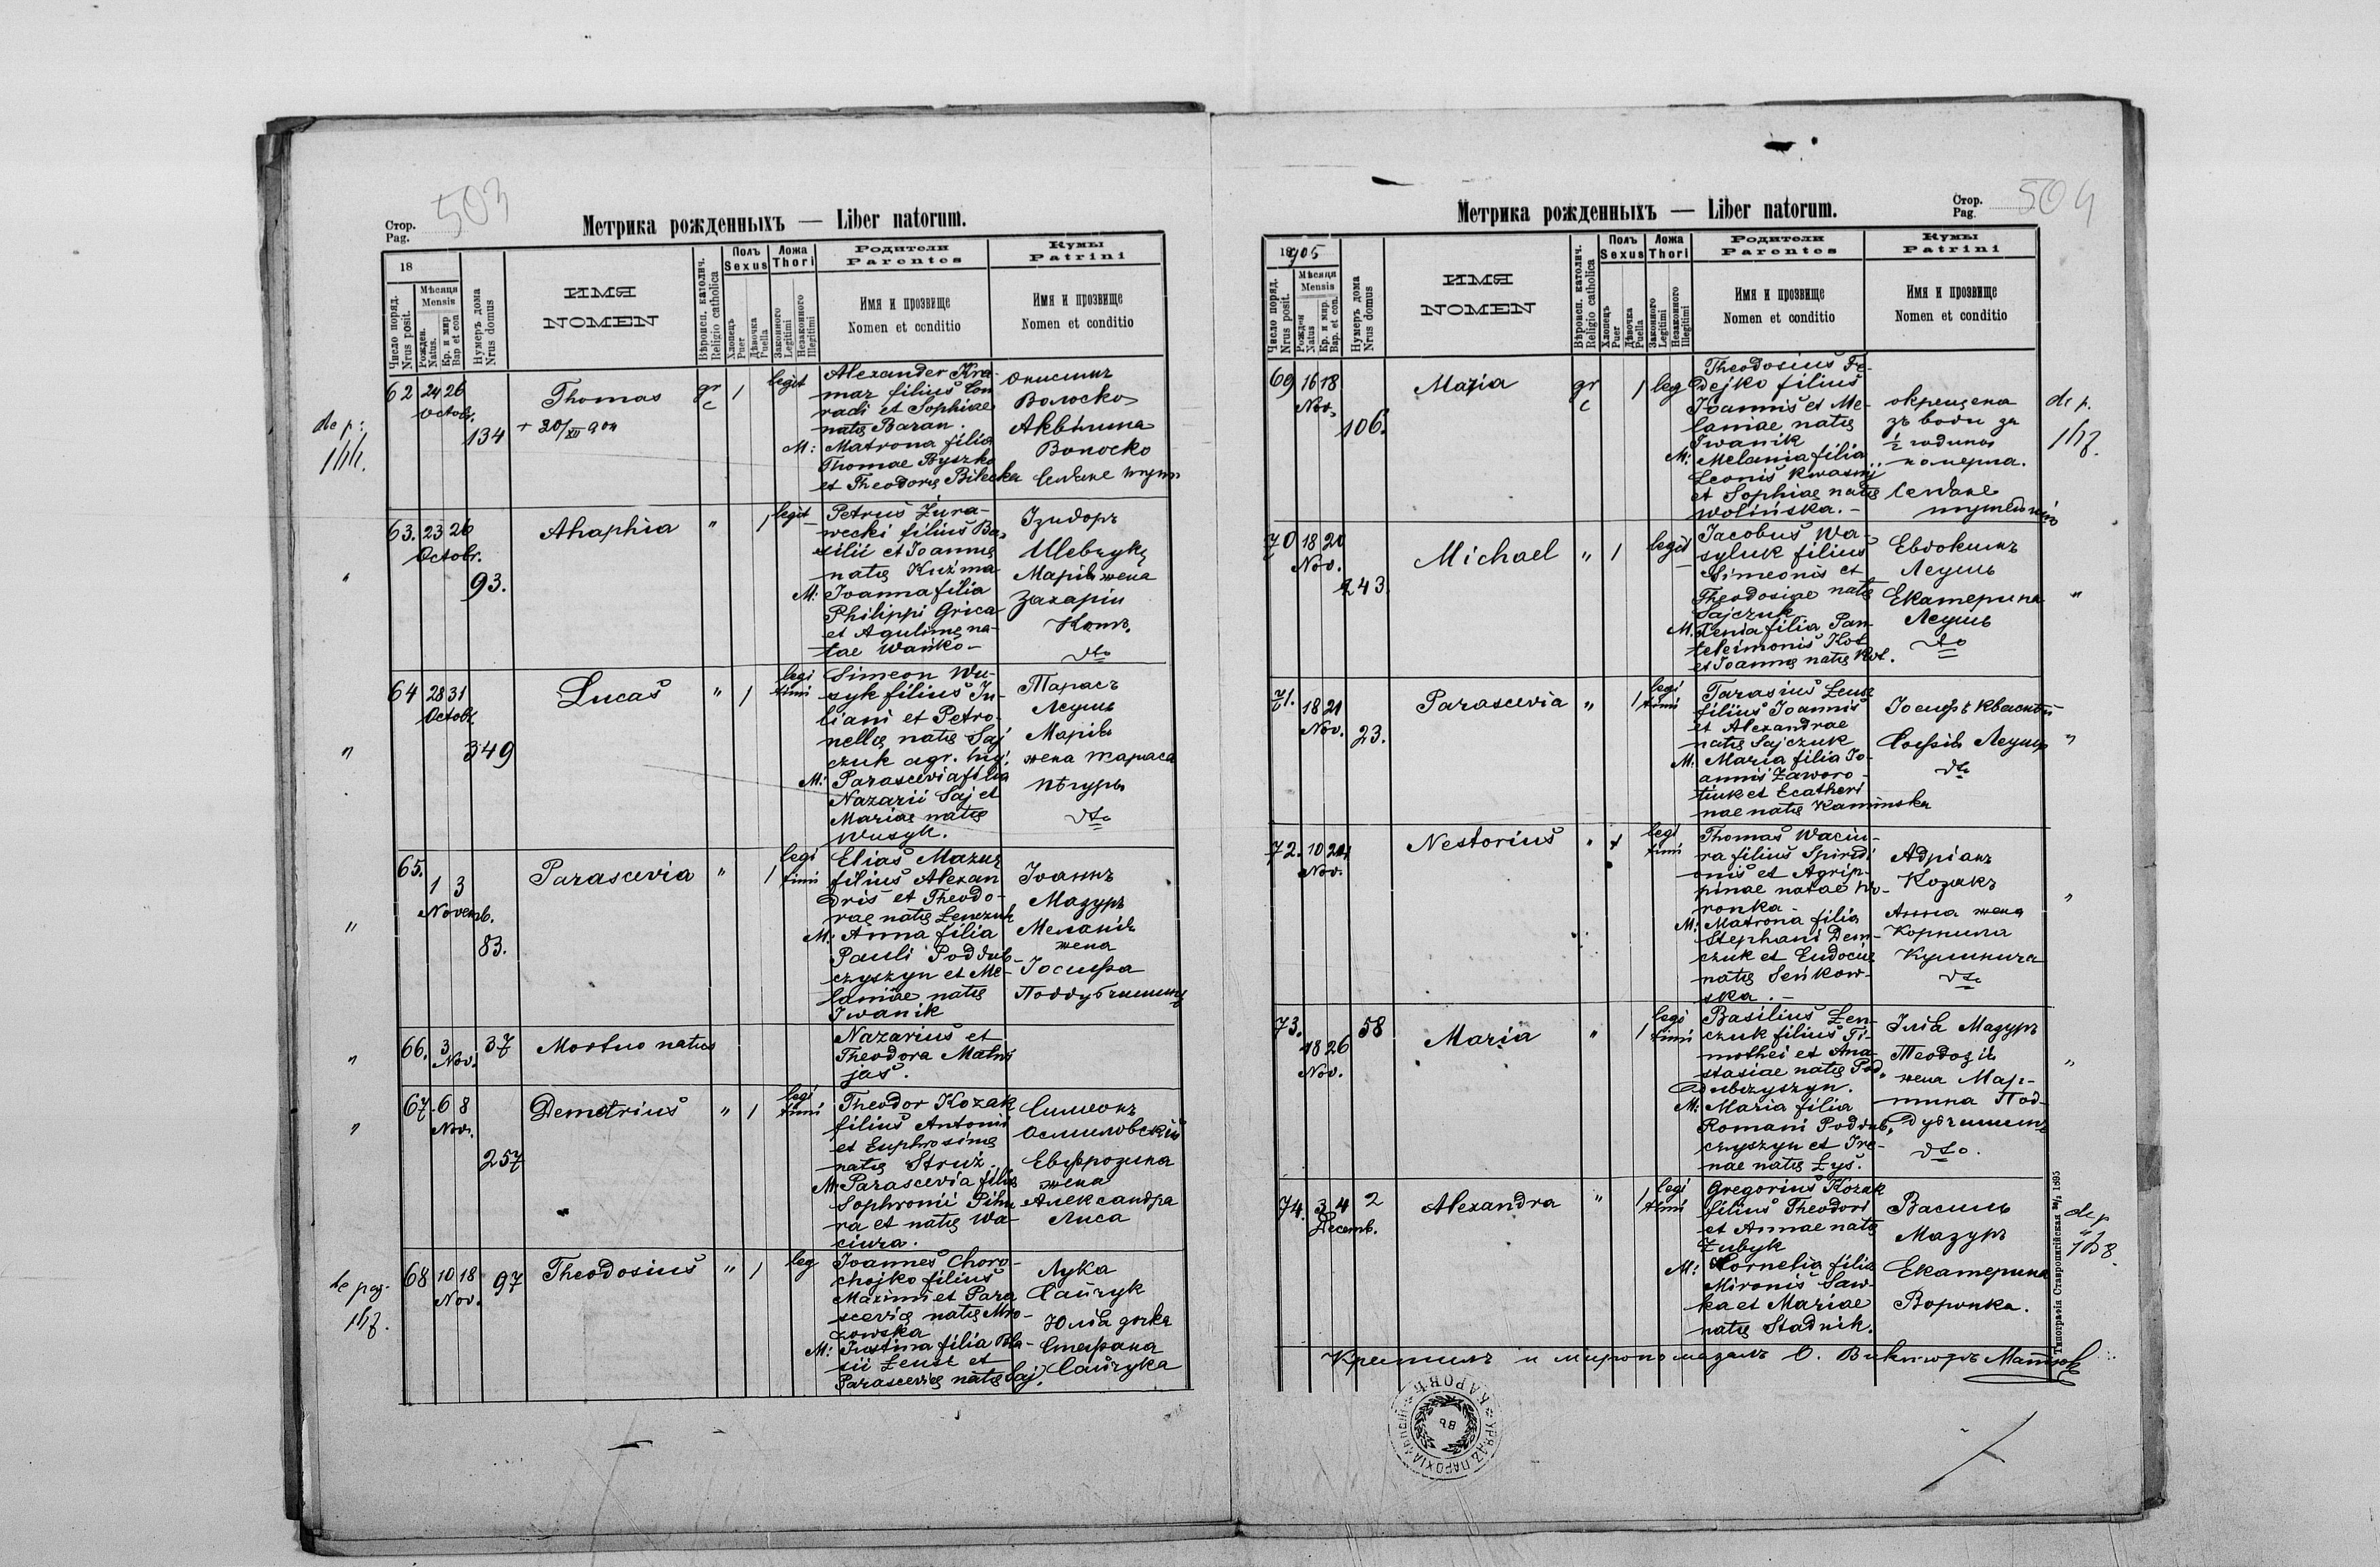 503
Стор.
Pag.
Метрика рожденныхъ — Liber natorum.
18
Число поряд.
Nrus posit.
Мѣсяця
Mensis
Рожден.
Natus.
Кр. и мир
Bap et con
Нумеръ дома
Nrus domus
ИМЯ
NOMEN
Вѣроисп. католич.
Religio catholica
Полъ
Sexus
Хлопець
Puer
Дѣвочка
Puella
Ложа
Thori
Законного
Legitimi
Незаконного
Illegitimi
Родители
Parentes
Имя и прозвище
Nomen et conditio
Кумы
Patrini
Имя и прозвище
Nomen et conditio
de p:
62 24 26
Octobr.
134
Thomas
+ 20/XII 904
gr
c
1
legit
Alexander Kra-
mar filius Con
radi et Sophiae
natę Baran.
M: Matrona filia
Thomae Byszko
et Theodorę Bilecka
Онисимъ
Волоско
Аквилина
Волоско
"
63. 23 26
Octobr.
93.
Ahaphia
"
1
legit
Petrus Żura-
wecki filius Ba-
silii et Joannę
natę Kuźma
M: Joanna filia
Philippi Grica
et Aqulinę na-
tae Wańko-
Ізидоръ
Шевчукъ
Марія жена
Захарія
Котъ.
dto
"
64 28 31
Octobr.
349
Lucas
"
1
legi
timi
Simeon Wu-
zyk filius Ju-
liani et Petro-
nellę natę Saj
czuk agr. huj.
M: Parascevia filia
Nazarii Saj et
Mariae natę
Wuzyk.
Тарасъ
Леущъ
Марія
жена Тараса
dto
"
65.
1 3
Novemb.
83.
Parascevia
"
1
legi
timi
Elias Mazur
filius Alexan
dris et Theodo-
rae natę Łenczuk
M: Anna filia
Pauli Poddub-
czyszyn et Me-
laniae natę
Iwanik
Іоаннъ
Мазуръ
Меланія
жена
Іосифа
Поддубчишинъ
"
66. 3
Nov.
37
Mortuo natus
Nazarius et
Theodora Matwi
jas.
"
67. 6 8
Nov.
257
Demetrius
"
1
legi
timi
Theodor Kozak
filius Antonii
et Euphrosinę
natę Struź.
M: Parascevia filia
Sophronii Pihu
ra et natę Wa-
ciura.
Симеонъ
Осмиловскій
Евфрозина
жена
Александра
Лиса
de pag.
68 10 18
Nov.
97
Theodosius
"
1
leg
Joannes Choro-
chojko filius
Maximi et Para
scevię natę Mro-
zowska
M: Justina filia Bla-
sii Łeusz et
Parascevię natę Saj.
Лука
Сайчук
Юлія дочка
Стефана
Сайчука
504
Стор.
Pag.
Метрика рожденныхъ — Liber natorum.
18905
Число поряд.
Nrus posit.
Мѣсяця
Mensis
Рожден
Natus
Кр. и мир.
Bap. et con.
Нумеръ дома
Nrus domus
ИМЯ
NOMEN
Вѣроисп. католич.
Religio catholica
Полъ
Sexus
Хлопець
Puer
Дѣвочка
Puella
Ложа
Thori
Законного
Legitimi
Незаконного
Illegitimi
Родители
Parentes
Имя и прозвище
Nomen et conditio
Кумы
Patrini
Имя и прозвище
Nomen et conditio
69 16 18
Nov.
106.
Maria
gr
c
1
leg
Theodosius Fe-
dejko filius
Joannis et Me-
laniae natę
Iwanik
M: Melania filia
Leonis Kwasnij
et Sophiae natę
Wolińska.-
окрещена
зъ води за
½ годины
померла.
de p.
70 18 20
Nov.
243.
Michael
"
1
legit
Jacobus Wa-
syluk filius
Simeonis et
Theodosiae natę
Sajczuk
M. Xenia filia Pan-
teleimonis Kot
et Joannę natę Kot.
Евдокимъ
Леущъ
Екатерина
Леущъ
dto
"
71. 18 21
Nov.
23.
Parascevia
"
1
legi
timi
Tarasius Łeusz
filius Joannis
et Alexandrae
natę Sajczuk
M: Maria filia Jo-
annis Zaworo-
tiuk et Ecatheri
nae natę Kaminska
Іосифъ Квасній
Софія Леущъ
dto
"
72. 10 21
Nov.
Nestorius
"
1
legi
timi
Thomas Waciu-
ra filius Spiridi
onis et Agrip-
pinae natae Wo-
ronka-
M: Matrona filia
Stephani Dem-
czuk et Eudocię
natę Seńkow-
ska.-
Адріанъ
Козакъ
Анна жена
Корнила
dto
"
73.
18 26
Nov.
58
Maria
"
1
legi
timi
Basilius Łen-
czuk filius Ti-
mothei et Ana-
stasiae natę Pod-
dubczyszyn.
M: Maria filia
Romani Poddub-
czyszyn et Ire-
nae natę Łys.
Ілія Мазуръ
Теодозія
жена Мар-
тина Под-
дубчишинъ
dto.
"
74. 3 4
Decemb.
2
Alexandra
"
1
legi
timi
Gregorius Kozak
filius Theodori
et Annae natę
Zubyk
M: Cornelia filia
Mironis Saw-
ka et Mariae
natę Stadnik.
Василь
Мазуръ
Екатерина
Воронка.
de p
Крестилъ и миропомазалъ О. Викторъ Матюк
Типографія Ставропигійская 1895
УРЯДЪ ПАРОХІАЛЬНЫЙ
КАРОВѢ